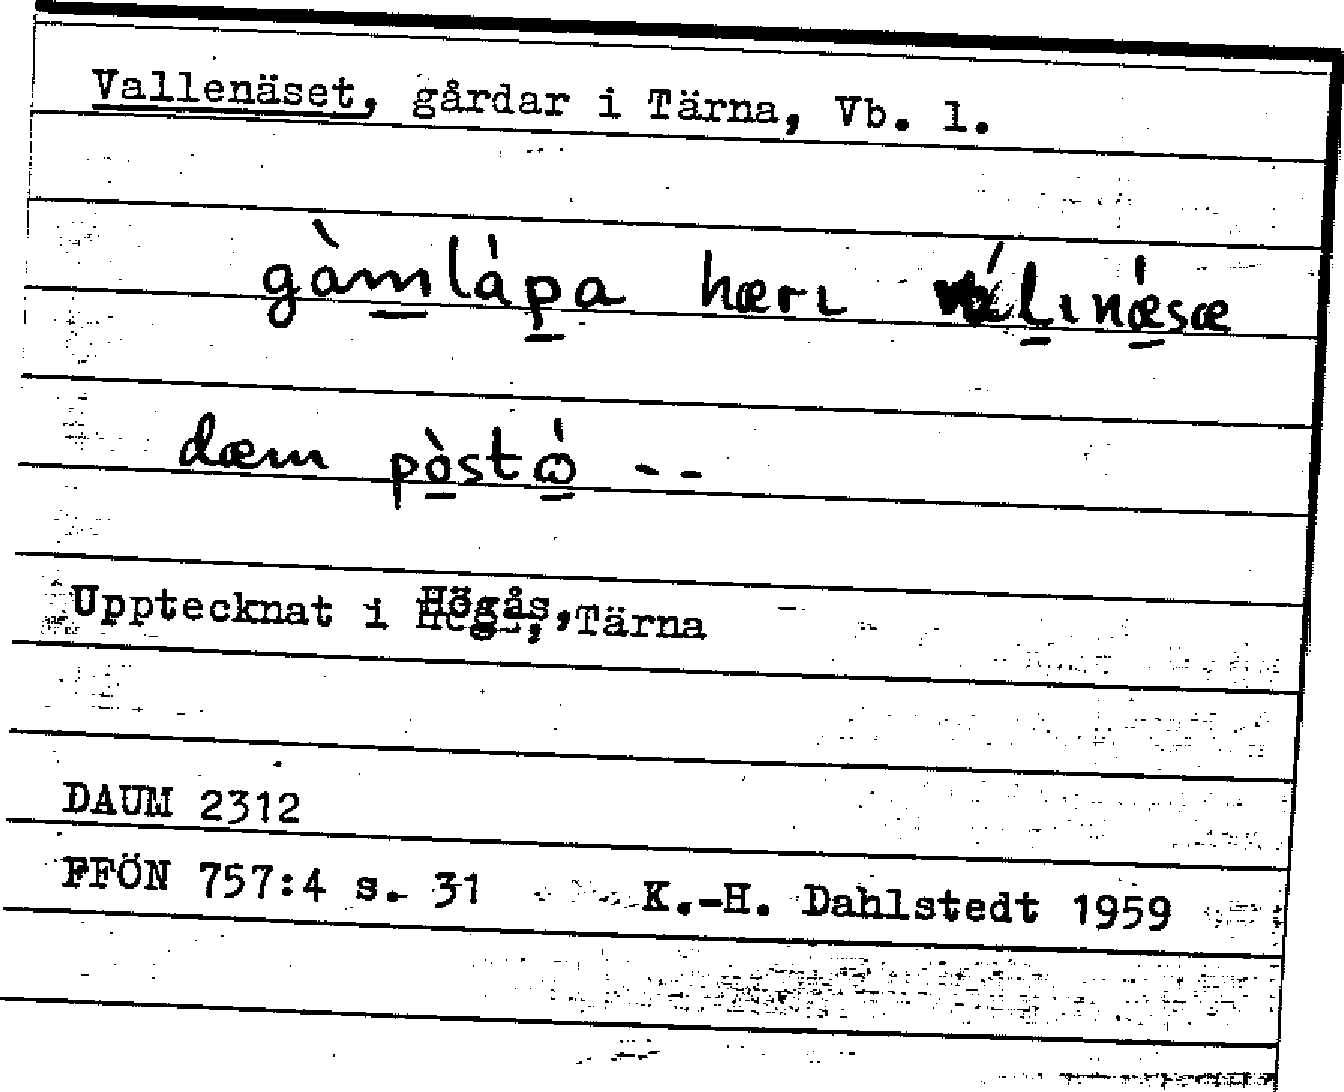 Vallenäset, gårdar i Tärna, Vb. l.
gàmlápa hærı válınǽsæ
dæm pòstǿ --
Upptecknat i Högås, Tärna
DAUM 2312
FFÖN 757:4 s. 31 K.-H. Dahlstedt 1959